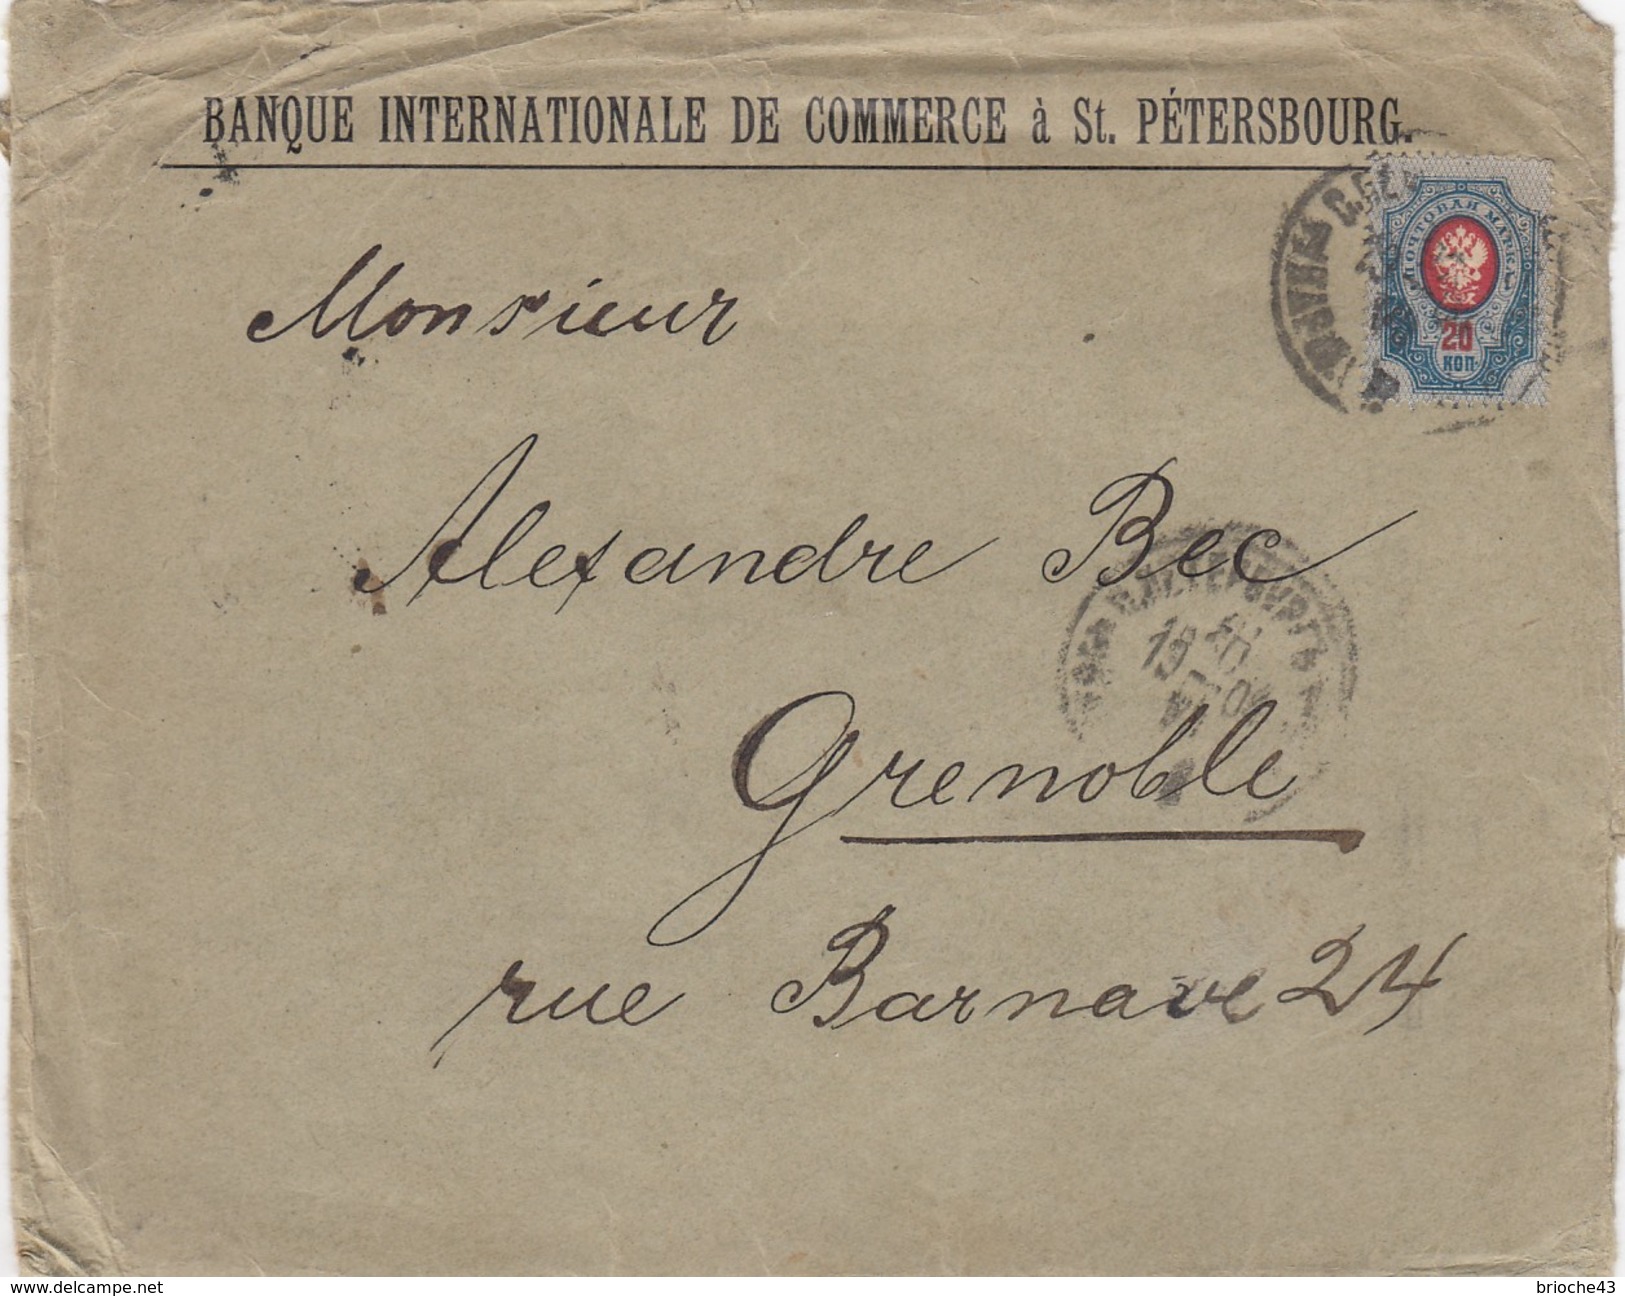 BANQUE INTERNATIONALE DE COMMERCE à St. PÉTERSBOURG.
ПОЧТОВАЯ МАРКА
20
КОП.
Monsieur
Alexandre Bec
Grenoble
rue Barnave 24
delcampe.net
brioche43